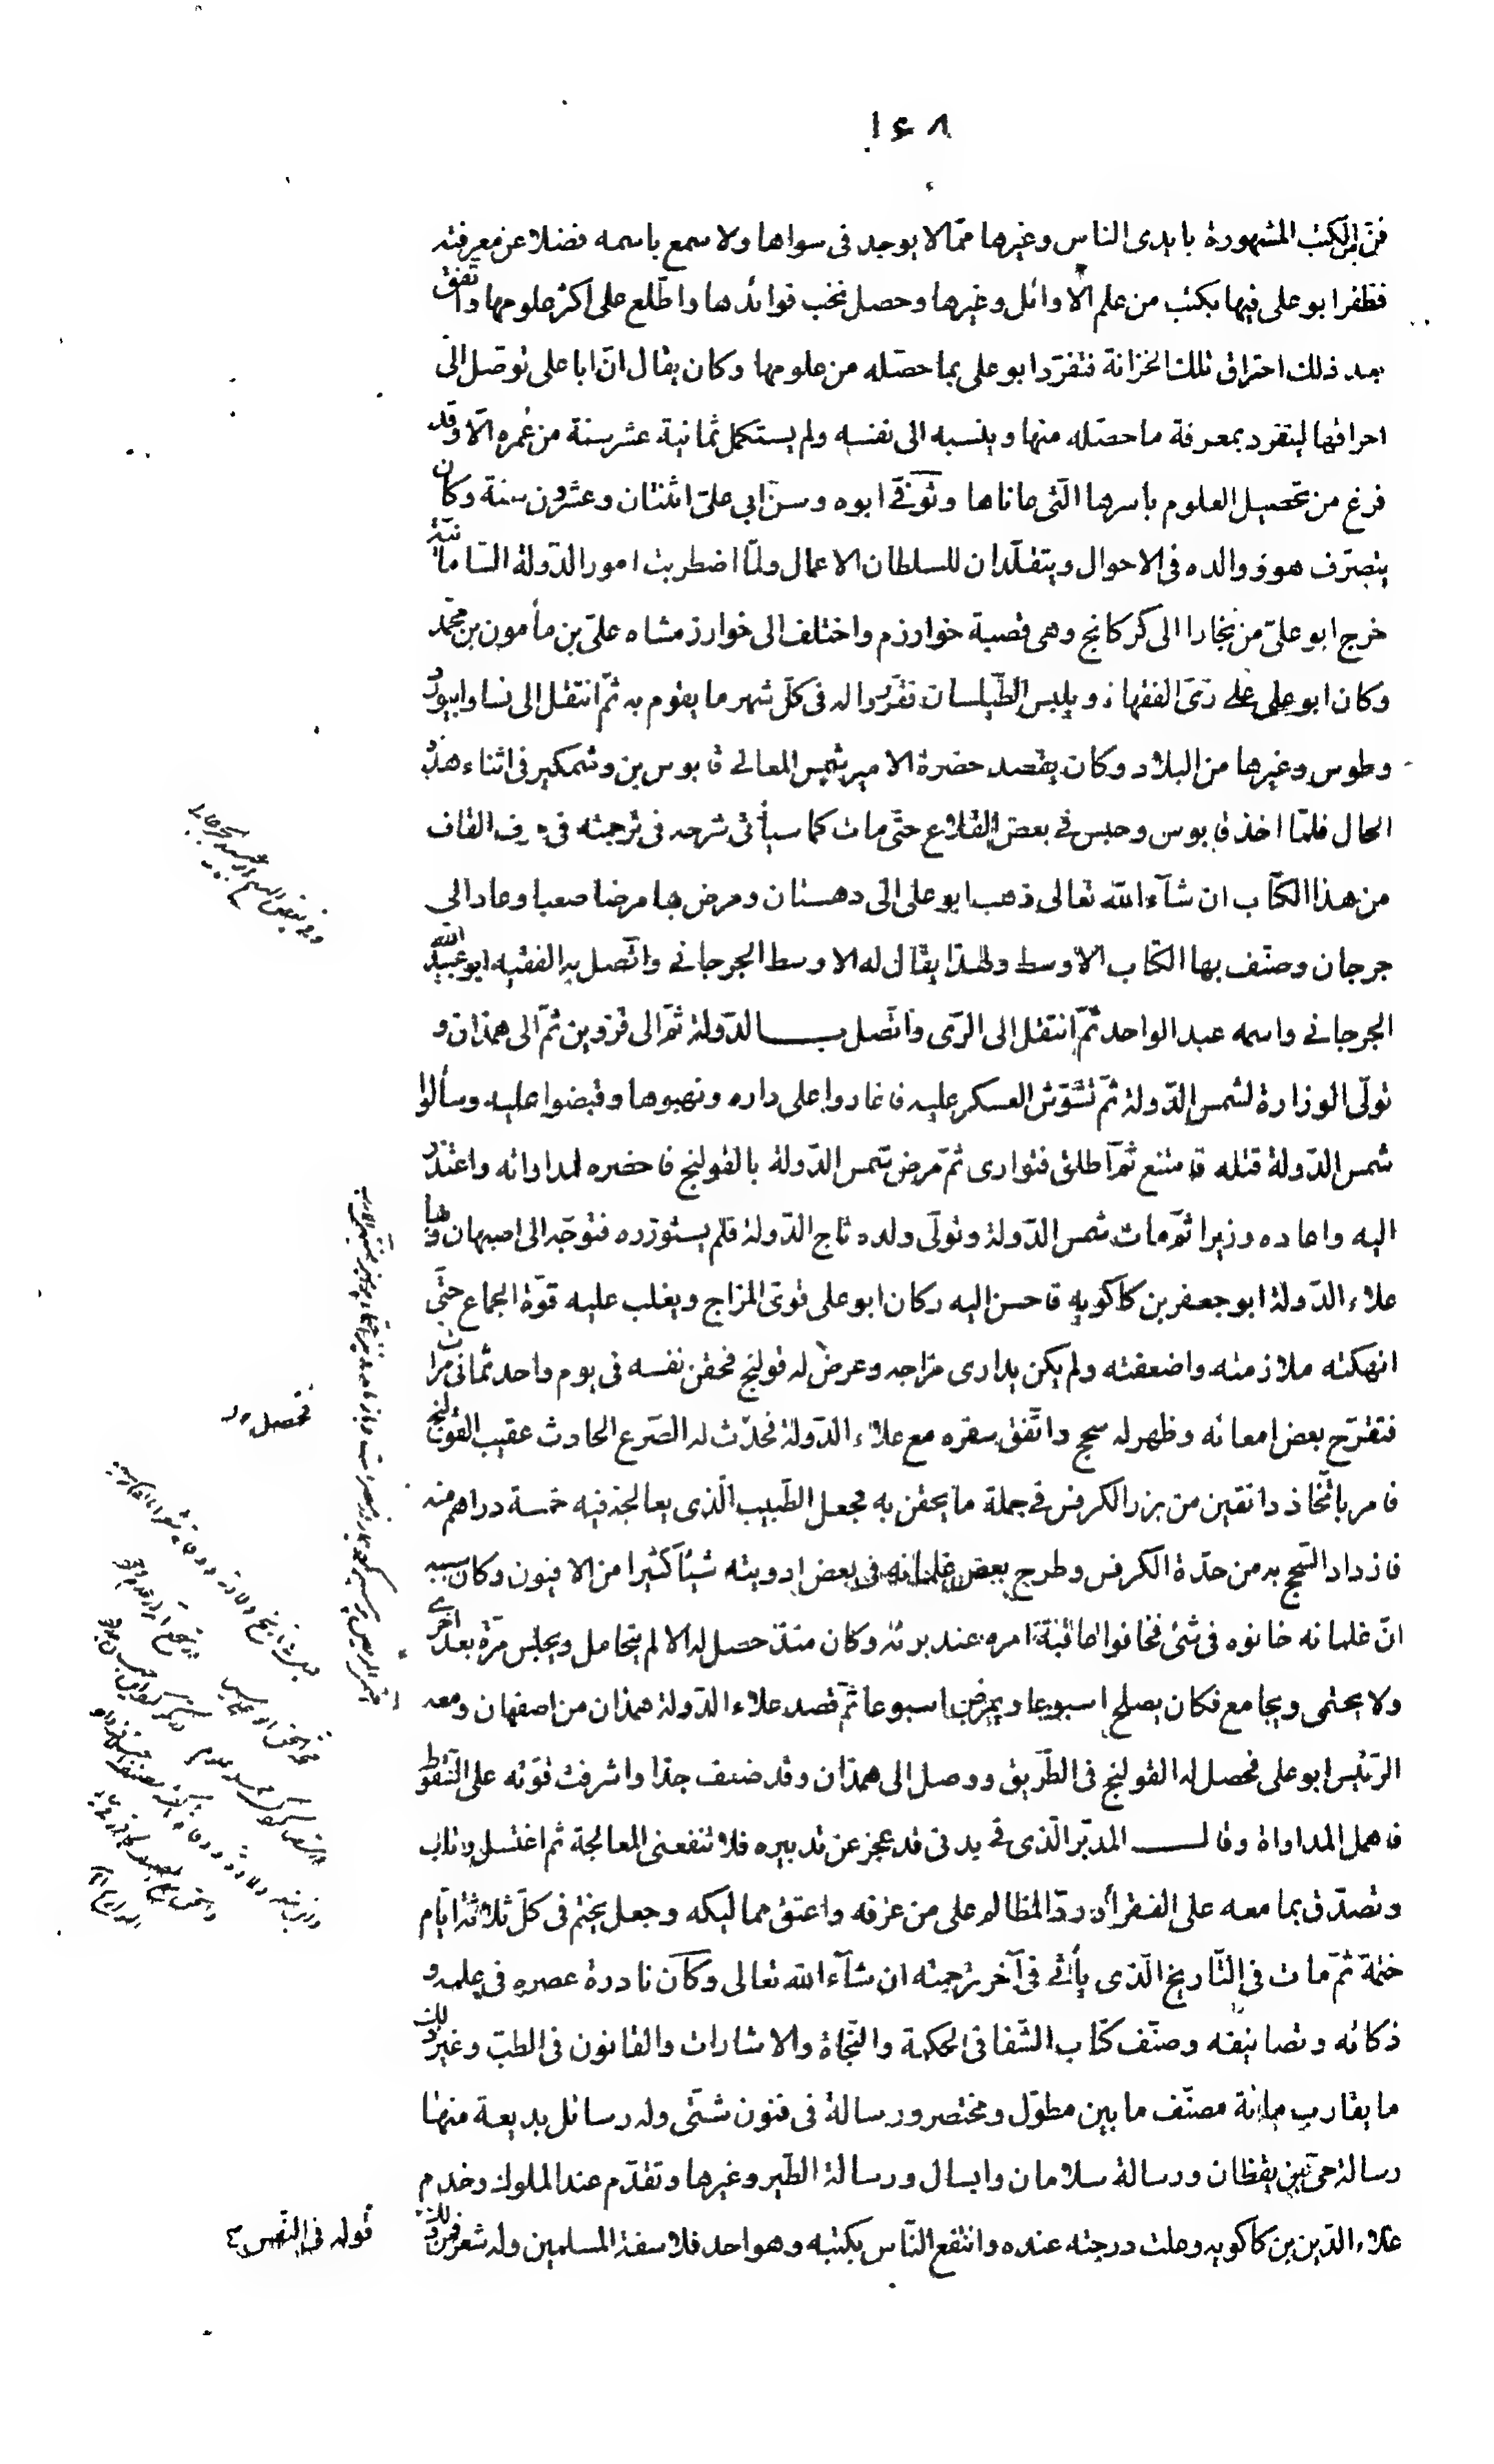 ١٤٨
فنّ من الكتب المشهورة بايدى الناس وغيرها ممّا لا يوجد فى سواها ولا سمع باسمه فضلا عن معرفته
فظفر ابو على فيها بكتب من علم الاوائل وغيرها وحصل نخب فوائدها واطّلع على اكثر علومها واتّفق
بعد ذلك احتراق تلك الخزانة فتفرّد ابو على بما حصّله من علومها وكان يقال انّ ابا على توصّل الى
احراقها ليتفرد بمعرفة ما حصّله منها وينسبه الى نفسه ولم يستكمل ثمانية عشر سنة من عُمره الّا وقد
فرغ من تحصيل العلوم باسرها الّتى عاناها وتوفّى ابوه وسنّ ابى علىّ اثنتان وعشرون سنة وكان
يتصرّف هو ووالده فى الاحوال ويتقلّدان للسلطان الاعمال ولمّا اضطربت امور الدّولة السّامانيّة
خرج ابو علىّ من بخارا الى كركانج وهى قصبة خوارزم واختلف الى خوارزمشاه علىّ بن مأمون بن محمّد
وكان ابو على على زىّ الفقهاء ويلبس الطّيلسان فقرّروا له فى كلّ شهر ما يقوم به ثمّ انتقل الى نسا وابيورد
وطوس وغيرها من البلاد وكان يقصد حضرة الامير شمس المعالى قابوس بن وشمكير فى اثناء هذه
الحال فلمّا اخذ قابوس وحبس فى بعض القلاع حتّى مات كما سيأتى شرحه فى ترجمته فى حرف القاف
من هذا الكتاب ان شآء الله تعالى ذهب ابو على الى دهستان ومرض بها مرضا صعبا وعاد الى
جرجان وصنّف بها الكتاب الاوسط ولهذا يقال له الاوسط الجرجانى واتّصل به الفقيه ابو عبيد الله
الجرجانى واسمه عبد الواحد ثمّ انتقل الى الرّى واتّصل بـــالدّولة ثمّ الى قزوين ثمّ الى همذان و
تولّى الوزارة لشمس الدّولة ثمّ تشوّش العسكر عليه فاغاروا على داره ونهبوها وقبضوا عليه وسألوا
شمس الدّولة قتله فامتنع ثمّ اطلق فتوارى ثمّ مرض شمس الدّولة بالقولنج فاحضره لمداواته واعتذر
اليه واعاده وزيرا ثمّ مات شمس الدّولة وتولّى ولده تاج الدّولة فلم يستوزره فتوجّه الى اصبهان وبها
علاء الدّولة ابو جعفر بن كاكويه فاحسن اليه وكان ابو على قوىّ المزاج ويغلب عليه قوّة الجماع حتّى
انهكته ملازمته واضعفته ولم يكن يدارى مزاجه وعرض له قولنج فحقن نفسه فى يوم واحد ثمانى مرات
فتقرّح بعض امعائه وظهر له سحج واتّفق سفره مع علاء الدّولة فحدث له الصّرع الحادث عقيب القولنج
فامر باتّخاذ دانقين من بزر الكرفس فى جملة ما يحقن به فجعل الطّبيب الّذى يعالجه فيه خمسة دراهم منه
فازداد السّحج به من حدّة الكرفس وطرح بعض غلمانه فى بعض ادويته شيئا كثيرا من الافيون وكان سببه
انّ غلمانه خانوه فى شئ فخافوا عاقبة امره عند برئه وكان منذ حصل له الالم يتحامل ويجلس مرّة بعد اخرى
ولا يحتمى ويجامع فكان يصلح اسبوعا ويمرض اسبوعا ثمّ قصد علاء الدّولة همذان من اصفهان ومعه
الرّئيس ابو على فحصل له القولنج فى الطّريق ووصل الى همذان وقد ضعف جدّا واشرفت قوّته على السّقوط
فاهمل المداواة وقالـــ المدبّر الّذى فى بدنى قد عجز عن تدبيره فلا تنفعنى المعالجة ثم اغتسل وتاب
وتصدّق بما معه على الفقرآء وردّ المظالم على من عرفه واعتق مماليكه وجعل يختم فى كلّ ثلاثة ايّام
ختمة ثمّ مات فى التّاريخ الّذى يأتى فى آخر ترجمته ان شآء الله تعالى وكان نادرة عصره فى علمه و
ذكائه وتصانيفه وصنّف كتاب الشّفا فى الحكمة والنّجاة والاشارات والقانون فى الطبّ وغير ذلك
ما يقارب مائة مصنّف ما بين مطوّل ومختصر ورسالة فى فنون شتّى وله رسائل بديعة منها
رسالة حىّ بن يقظان ورسالة سلامان وابسال ورسالة الطّير وغيرها وتقدّم عند الملوك وخدم
علاء الدّين بن كاكويه وعلت درجته عنده وانتفع النّاس بكتبه وهو احد فلاسفة المسلمين وله شعر فمن ذلك
فحصل له
قوله فى النّفس